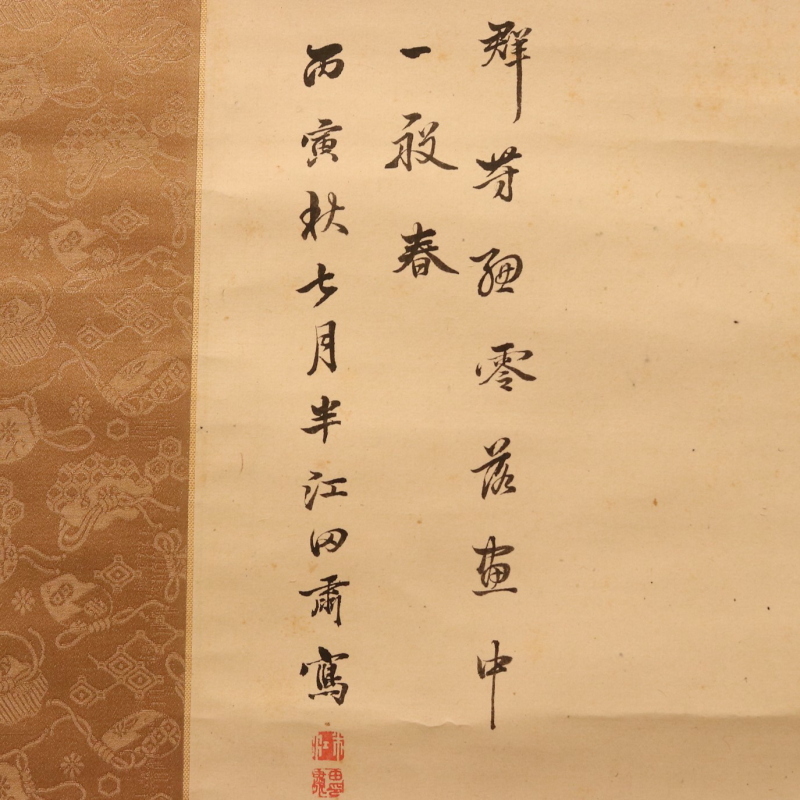 群芳總零落畫中
一般春
丙寅秋七月半江田肅寫
半江